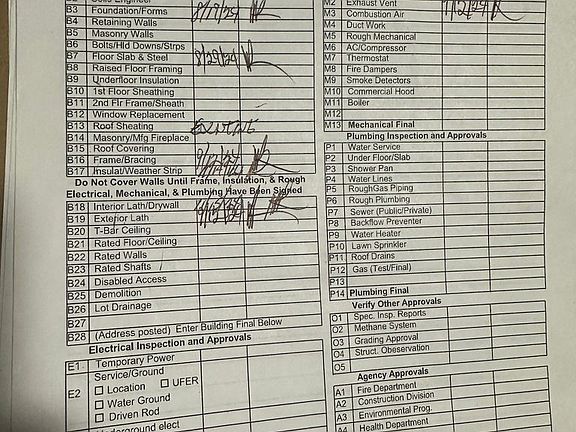 B3 Foundation/Forms
B4 Retaining Walls
B5 Masonry Walls
B6 Bolts/Hld Downs/Strps
B7 Floor Slab & Steel 8/29/24
B8 Raised Floor Framing
B9 Underfloor Insulation
B10 1st Floor Sheathing
B11 2nd Flr Frame/Sheath
B12 Window Replacement
B13 Roof Sheating
B14 Masonry/Mfg Fireplace
B15 Roof Covering
B16 Frame/Bracing
B17 Insulat/Weather Strip
Do Not Cover Walls Until Frame, Insulation, & Rough
Electrical, Mechanical, & Plumbing Have Been Signed
B18 Interior Lath/Drywall
B19 Exterior Lath
B20 T-Bar Ceiling
B21 Rated Floor/Ceiling
B22 Rated Walls
B23 Rated Shafts
B24 Disabled Access
B25 Demolition
B26 Lot Drainage
B27
B28 (Address posted) Enter Building Final Below
Electrical Inspection and Approvals
E1 Temporary Power
Service/Ground
E2 Location UFER
Water Ground
Driven Rod
M2 Exhaust Vent
M3 Combustion Air
M4 Duct Work
M5 Rough Mechanical
M6 AC/Compressor
M7 Thermostat
M8 Fire Dampers
M9 Smoke Detectors
M10 Commercial Hood
M11 Boiler
M12
M13 Mechanical Final
Plumbing Inspection and Approvals
P1 Water Service
P2 Under Floor/Slab
P3 Shower Pan
P4 Water Lines
P5 RoughGas Piping
P6 Rough Plumbing
P7 Sewer (Public/Private)
P8 Backflow Preventer
P9 Water Heater
P10 Lawn Sprinkler
P11 Roof Drains
P12 Gas (Test/Final)
P13
P14 Plumbing Final
Verify Other Approvals
O1 Spec. Insp. Reports
O2 Methane System
O3 Grading Approval
O4 Struct. Obeservation
O5
Agency Approvals
A1 Fire Department
A2 Construction Division
A3 Environmental Prog.
A4 Health Department